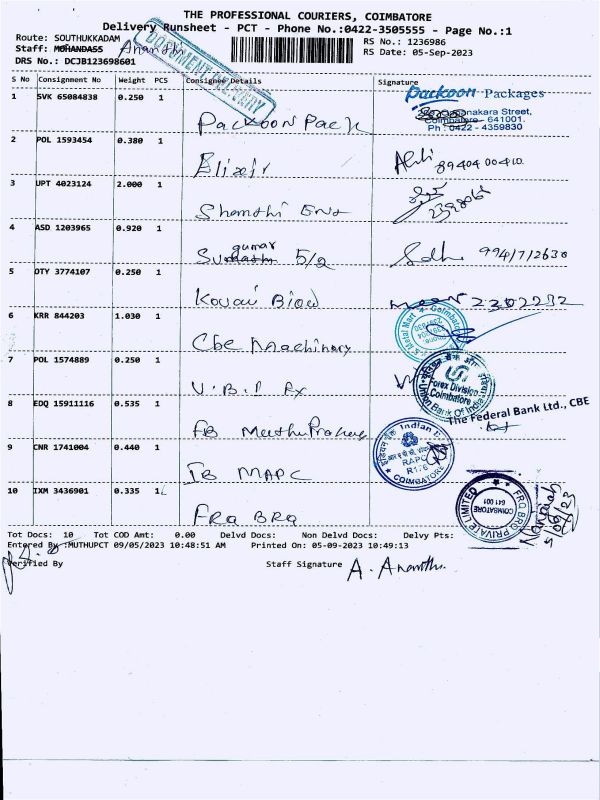 THE PROFESSIONAL COURIERS, COIMBATORE
Delivery Runsheet - PCT - Phone No.:0422-3505555 - Page No.:1
Route: SOUTHUKKADAM
RS No.: 1236986
Staff: MOHANDASS Ananth
RS Date: 05-Sep-2023
DRS No.: DCJB123698601
DOCUMENT DELIVERY
S No Consignment No Weight PCS Consignee Details Signature
1 SVK 65084838 0.250 1 Packoon Pack
Packoon Packages
onakara Street,
Coimbatore - 641001.
Ph : 0422 - 4359830
2 POL 1593454 0.380 1 Elixir 89404 00410
3 UPT 4023124 2.000 1 Shanthi Ent
4 ASD 1203965 0.920 1 5/2 9941712630
5 OTY 3774107 0.250 1 Kovai Biow 2302232
6 KRR 844203 1.030 1 Cbe Machinary
7 POL 1574889 0.250 1 U.B.I Fx
Forex Division
Coimbatore
Union Bank Of India
8 EDQ 15911116 0.535 1 FB
The Federal Bank Ltd., CBE
9 CNR 1741004 0.440 1 IB MAPC
Indian
RAPC
COIMBATORE
10 IXM 3436901 0.335 1 FRQ BRQ
FRQ BRO PRIVATE LIMITED
COIMBATORE
641 001
Tot Docs: 10 Tot COD Amt: 0.00 Delvd Docs: Non Delvd Docs: Delvy Pts:
Entered By :MUTHUPCT 09/05/2023 10:48:51 AM Printed On: 05-09-2023 10:49:13
Verified By Staff Signature A. Ananth